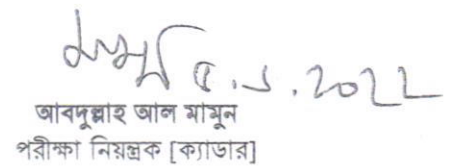 ৫.১.2022
আবদুল্লাহ আল মামুন
পরীক্ষা নিয়ন্ত্রক [ক্যাডার]